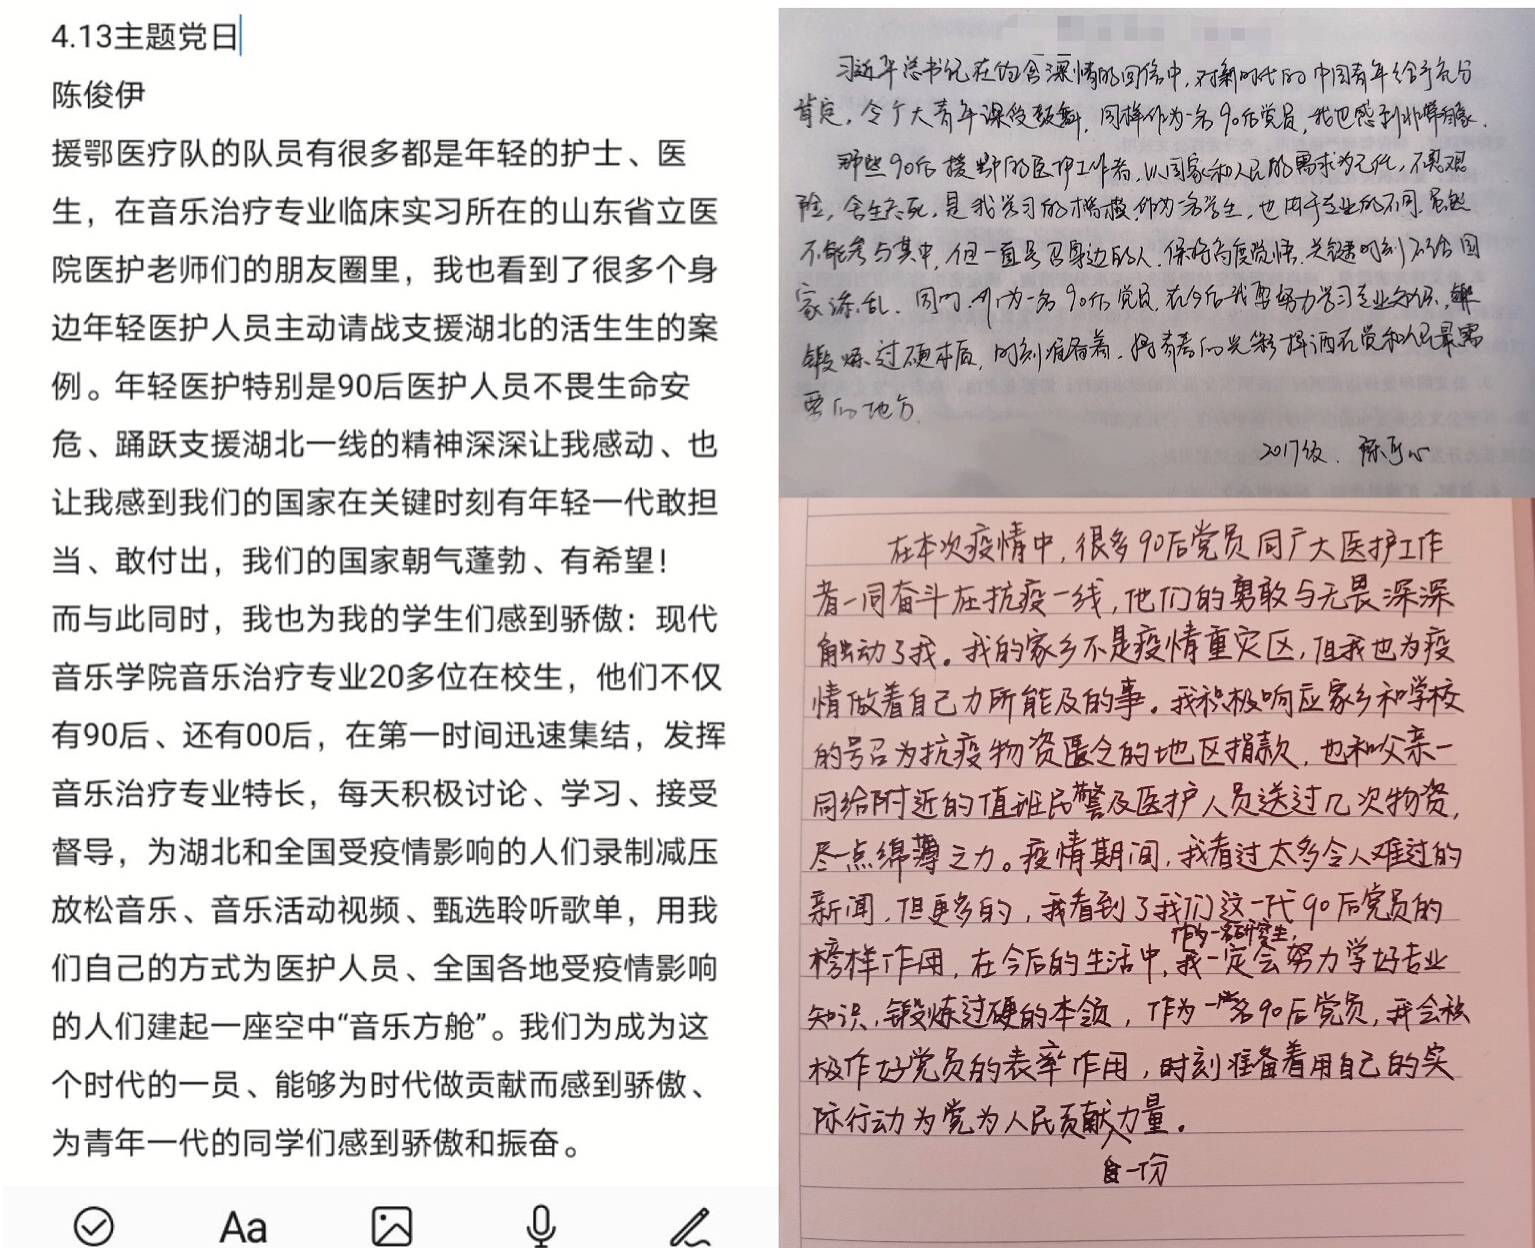 4.13主题党日
陈俊伊
援鄂医疗队的队员有很多都是年轻的护士、医
生，在音乐治疗专业临床实习所在的山东省立医
院医护老师们的朋友圈里，我也看到了很多个身
边年轻医护人员主动请战支援湖北的活生生的案
例。年轻医护特别是90后医护人员不畏生命安
危、踊跃支援湖北一线的精神深深让我感动、也
让我感到我们的国家在关键时刻有年轻一代敢担
当、敢付出，我们的国家朝气蓬勃、有希望！
而与此同时，我也为我的学生们感到骄傲：现代
音乐学院音乐治疗专业20多位在校生，他们不仅
有90后、还有00后，在第一时间迅速集结，发挥
音乐治疗专业特长，每天积极讨论、学习、接受
督导，为湖北和全国受疫情影响的人们录制减压
放松音乐、音乐活动视频、甄选聆听歌单，用我
们自己的方式为医护人员、全国各地受疫情影响
的人们建起一座空中“音乐方舱”。我们为成为这
个时代的一员、能够为时代做贡献而感到骄傲、
为青年一代的同学们感到骄傲和振奋。
Aa
习近平总书记在饱含深情的回信中，对新时代的中国青年给予充分
肯定，令广大青年深受鼓舞，同样作为一名90后党员，我也感到非常自豪．
那些90后援鄂的医护工作者，以国家和人民的需求为先，不畏艰
险，舍生忘死，是我学习的楷模．作为一名学生，也由于专业的不同，虽然
不能参与其中，但一直号召身边的人，保持高度觉悟，关键时刻不给国
家添乱．同时，作为一名90后党员，在今后我要努力学习专业知识，
锻炼过硬本质，时刻准备着，将青春的光彩挥洒在党和人民最需
要的地方．
2017级．陈
在本次疫情中，很多90后党员同广大医护工作
者一同奋斗在抗疫一线，他们的勇敢与无畏深深
触动了我。我的家乡不是疫情重灾区，但我也为疫
情做着自己力所能及的事。我积极响应家乡和学校
的号召为抗疫物资匮乏的地区捐款，也和父亲一
同给附近的值班民警及医护人员送过几次物资，
尽一点绵薄之力。疫情期间，我看过太多令人难过的
新闻，但更多的，我看到了我们这一代90后党员的
作为一名研究生，
榜样作用，在今后的生活中，我一定会努力学好专业
知识，锻炼过硬的本领，作为一名90后党员，我会积
极作好党员的表率作用，时刻准备着用自己的实
际行动为党为人民贡献力量。
一份